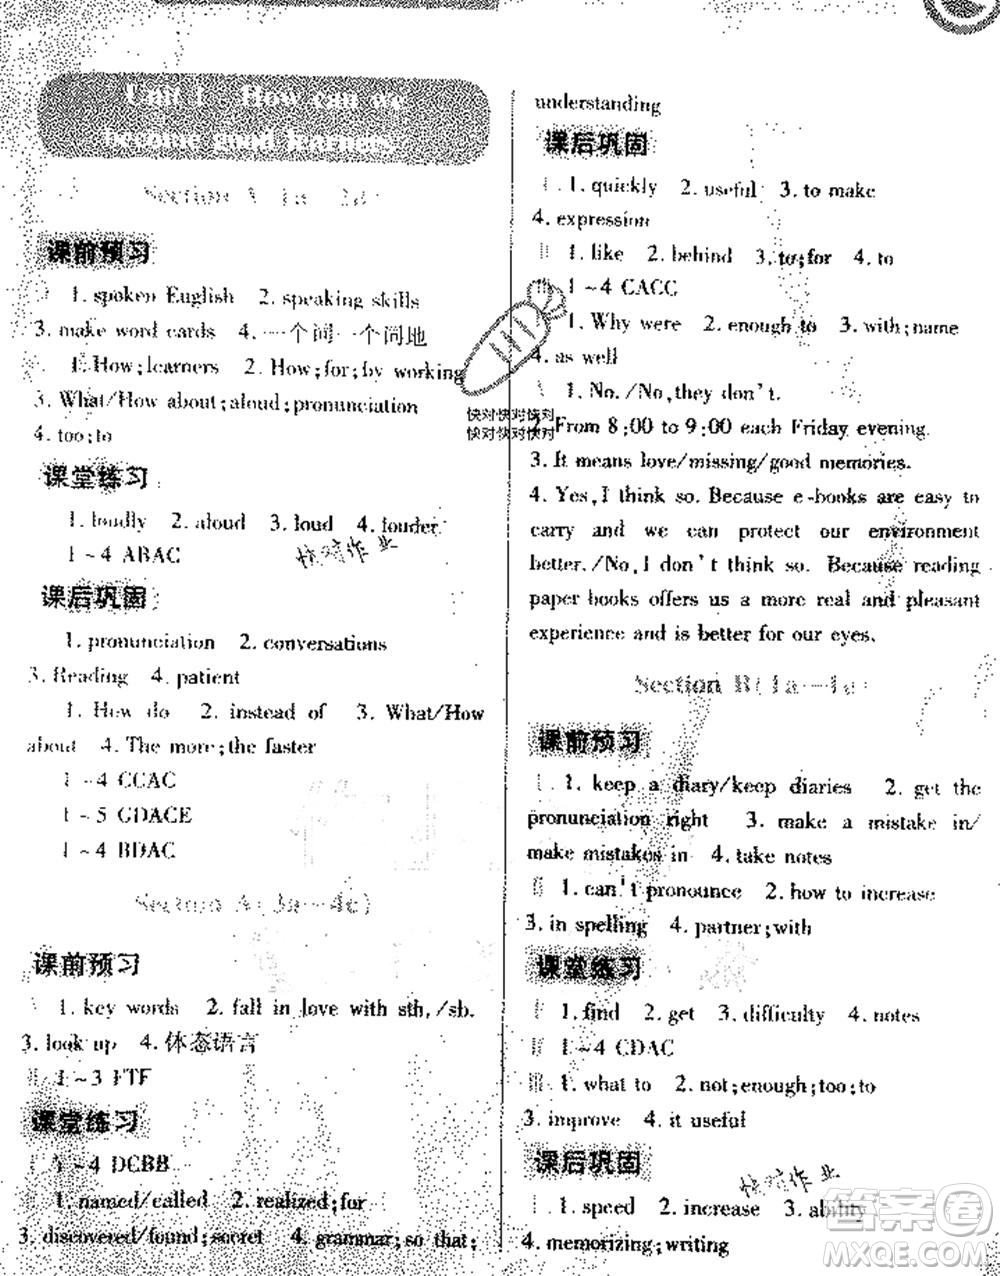 Unit 1 How can we
become good learners?
Section A (1a—2d)
课前预习
1. spoken English 2. speaking skills
3. make word cards 4. 一个词一个词地
1. How; learners 2. How; for; by working
3. What/How about; aloud; pronunciation
4. too; to
课堂练习
1. loudly 2. aloud 3. loud 4. louder
1~4 ABAC
快对作业
课后巩固
1. pronunciation 2. conversations
3. Reading 4. patient
1. How do 2. instead of 3. What/How
about 4. The more; the faster
1~4 CCAC
1~5 GDACE
1~4 BDAC
Section A (3a—4c)
课前预习
1. key words 2. fall in love with sth./sb.
3. look up 4. 体态语言
1~3 FTF
课堂练习
1~4 DCBB
1. named/called 2. realized; for
3. discovered/found; secret 4. grammar; so that;
understanding
课后巩固
1. quickly 2. useful 3. to make
4. expression
Ⅱ 1. like 2. behind 3. to; for 4. to
Ⅲ 1~4 CACC
1. Why were 2. enough to 3. with; name
4. as well
快对快对快对
快对快对快对
1. No./No, they don't.
2. From 8:00 to 9:00 each Friday evening.
3. It means love/missing/good memories.
4. Yes, I think so. Because e-books are easy to
carry and we can protect our environment
better./No, I don't think so. Because reading
paper books offers us a more real and pleasant
experience and is better for our eyes.
Section B (1a—1d)
课前预习
1. keep a diary/keep diaries 2. get the
pronunciation right 3. make a mistake in/
make mistakes in 4. take notes
Ⅱ 1. can't pronounce 2. how to increase
3. in spelling 4. partner; with
课堂练习
1. find 2. get 3. difficulty 4. notes
Ⅱ 1~4 CDAC
Ⅲ 1. what to 2. not; enough; too; to
3. improve 4. it useful
课后巩固
快对作业
1. speed 2. increase 3. ability
4. memorizing; writing
答案圈
MXQE.COM